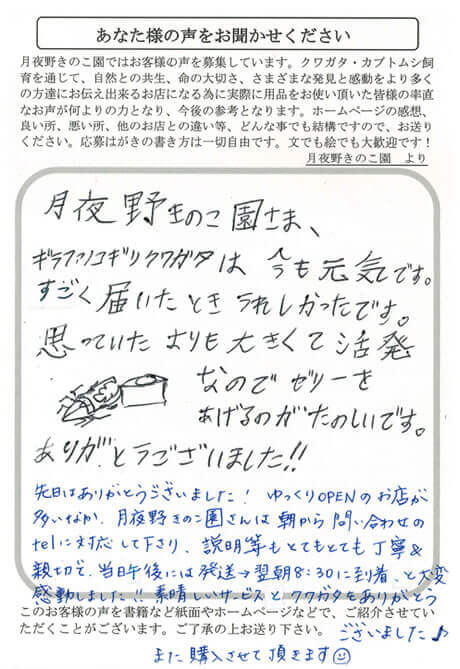 あなた様の声をお聞かせください
月夜野きのこ園ではお客様の声を募集しています。クワガタ・カブトムシ飼
育を通じて、自然との共生、命の大切さ、さまざまな発見と感動をより多く
の方達にお伝え出来るお店になる為に実際に用品をお使い頂いた皆様の率直
なお声が何よりの力となり、今後の参考となります。ホームページの感想、
良い所、悪い所、他のお店との違い等、どんな事でも結構ですので、お送り
ください。応募はがきの書き方は一切自由です。文でも絵でも大歓迎です！
月夜野きのこ園　より
月夜野きのこ園さま、
ギラファノコギリクワガタは 今も元気です。
すごく届いたとき うれしかったです。
思っていた よりも 大きくて 活発
なので ゼリーを
あげるのが たのしいです。
ありがとうございました!!
先日はありがとうございました! ゆっくりOPENのお店が
多いなか、月夜野きのこ園さんは 朝から 問い合わせの
telに対応して下さり、説明等もとてもとても丁寧&
親切で、当日午後には発送→翌朝8:30に到着、と大変
感動しました!! 素晴しいサービスとクワガタをありがとう
このお客様の声を書籍など紙面やホームページなどで、ご紹介させてい
ただくことがございます。ご了承の上お送り下さい。
ございました♪
また 購入させて 頂きます☺